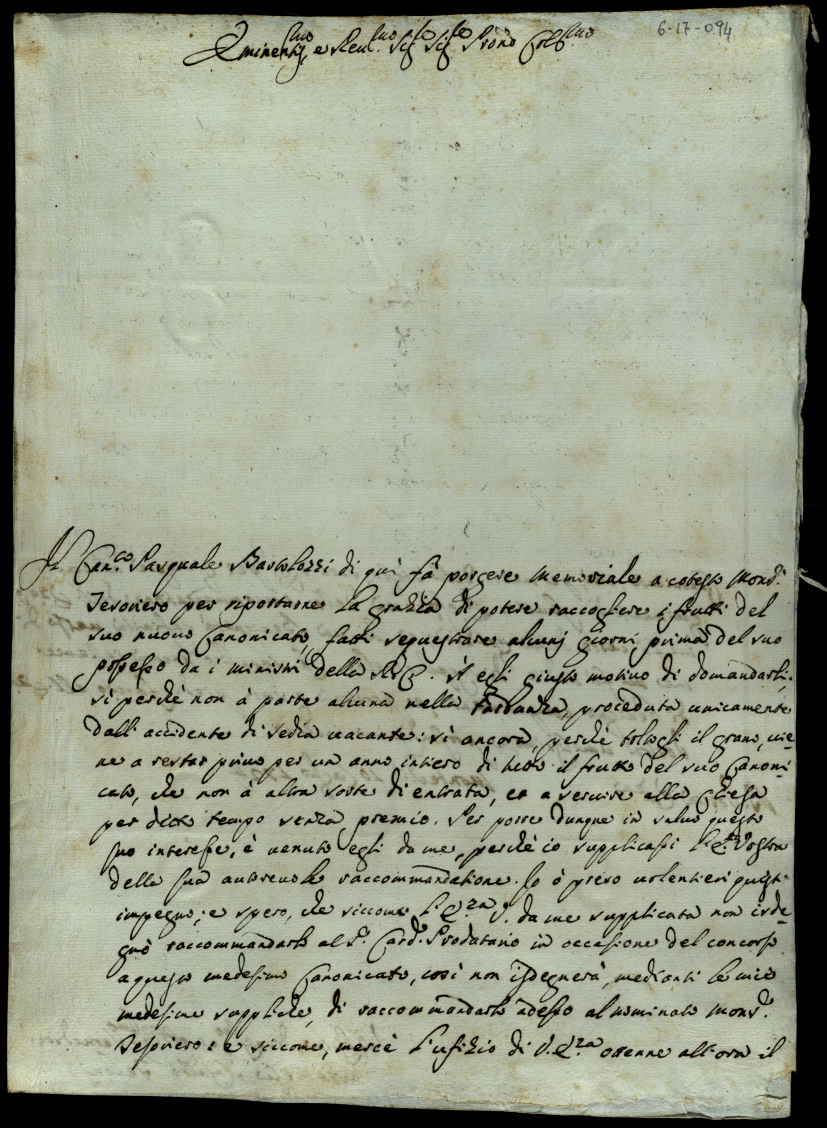 6-17-094
Eminen.mo e Reu.mo Sig.re Sig.re Prōne Col.mo
Il Can.co Pasquale Bartolozzi di quì fà porgere memoriale a cotesto Mons.r
Tesoriero per riportarne la grazia di potere raccogliere i frutti del
suo nuouo Canonicato, fatti sequestrare alcunj giorni prima del suo
possesso da i ministri della R.C. A egli giusto motivo di domandarla,
sì perchè non à parte alcuna nella tardanza, proceduta unicamente
dall'accidente di sedia uacante: sì ancora, perchè toltogli il grano, uie-
ne a restar priuo per un anno intiero di tutto il frutto del suo Canoni-
cato, che non à altra sorte di entrata, et a seruire alla Chiesa
per detto tempo senza premio. Per porre dunque in saluo questo
suo interesse, è uenuto egli da me, perchè io supplicassi l'E.za Vostra
della sua autoreuole raccommandatione. Io ò preso uolentieri quest'
impegno; e spero, che siccome l'E.za V. da me supplicata non isde-
gnò raccommandarlo al S.r Card. Prodatario in occasione del concorso
a questo medesimo Canonicato, così non isdegnerà, medianti le mie
medesime suppliche, di raccommandarlo adesso al nominato Mons.r
Tesoriero: e siccome, mercè l'ufizio di V.E.za ottenne allora il